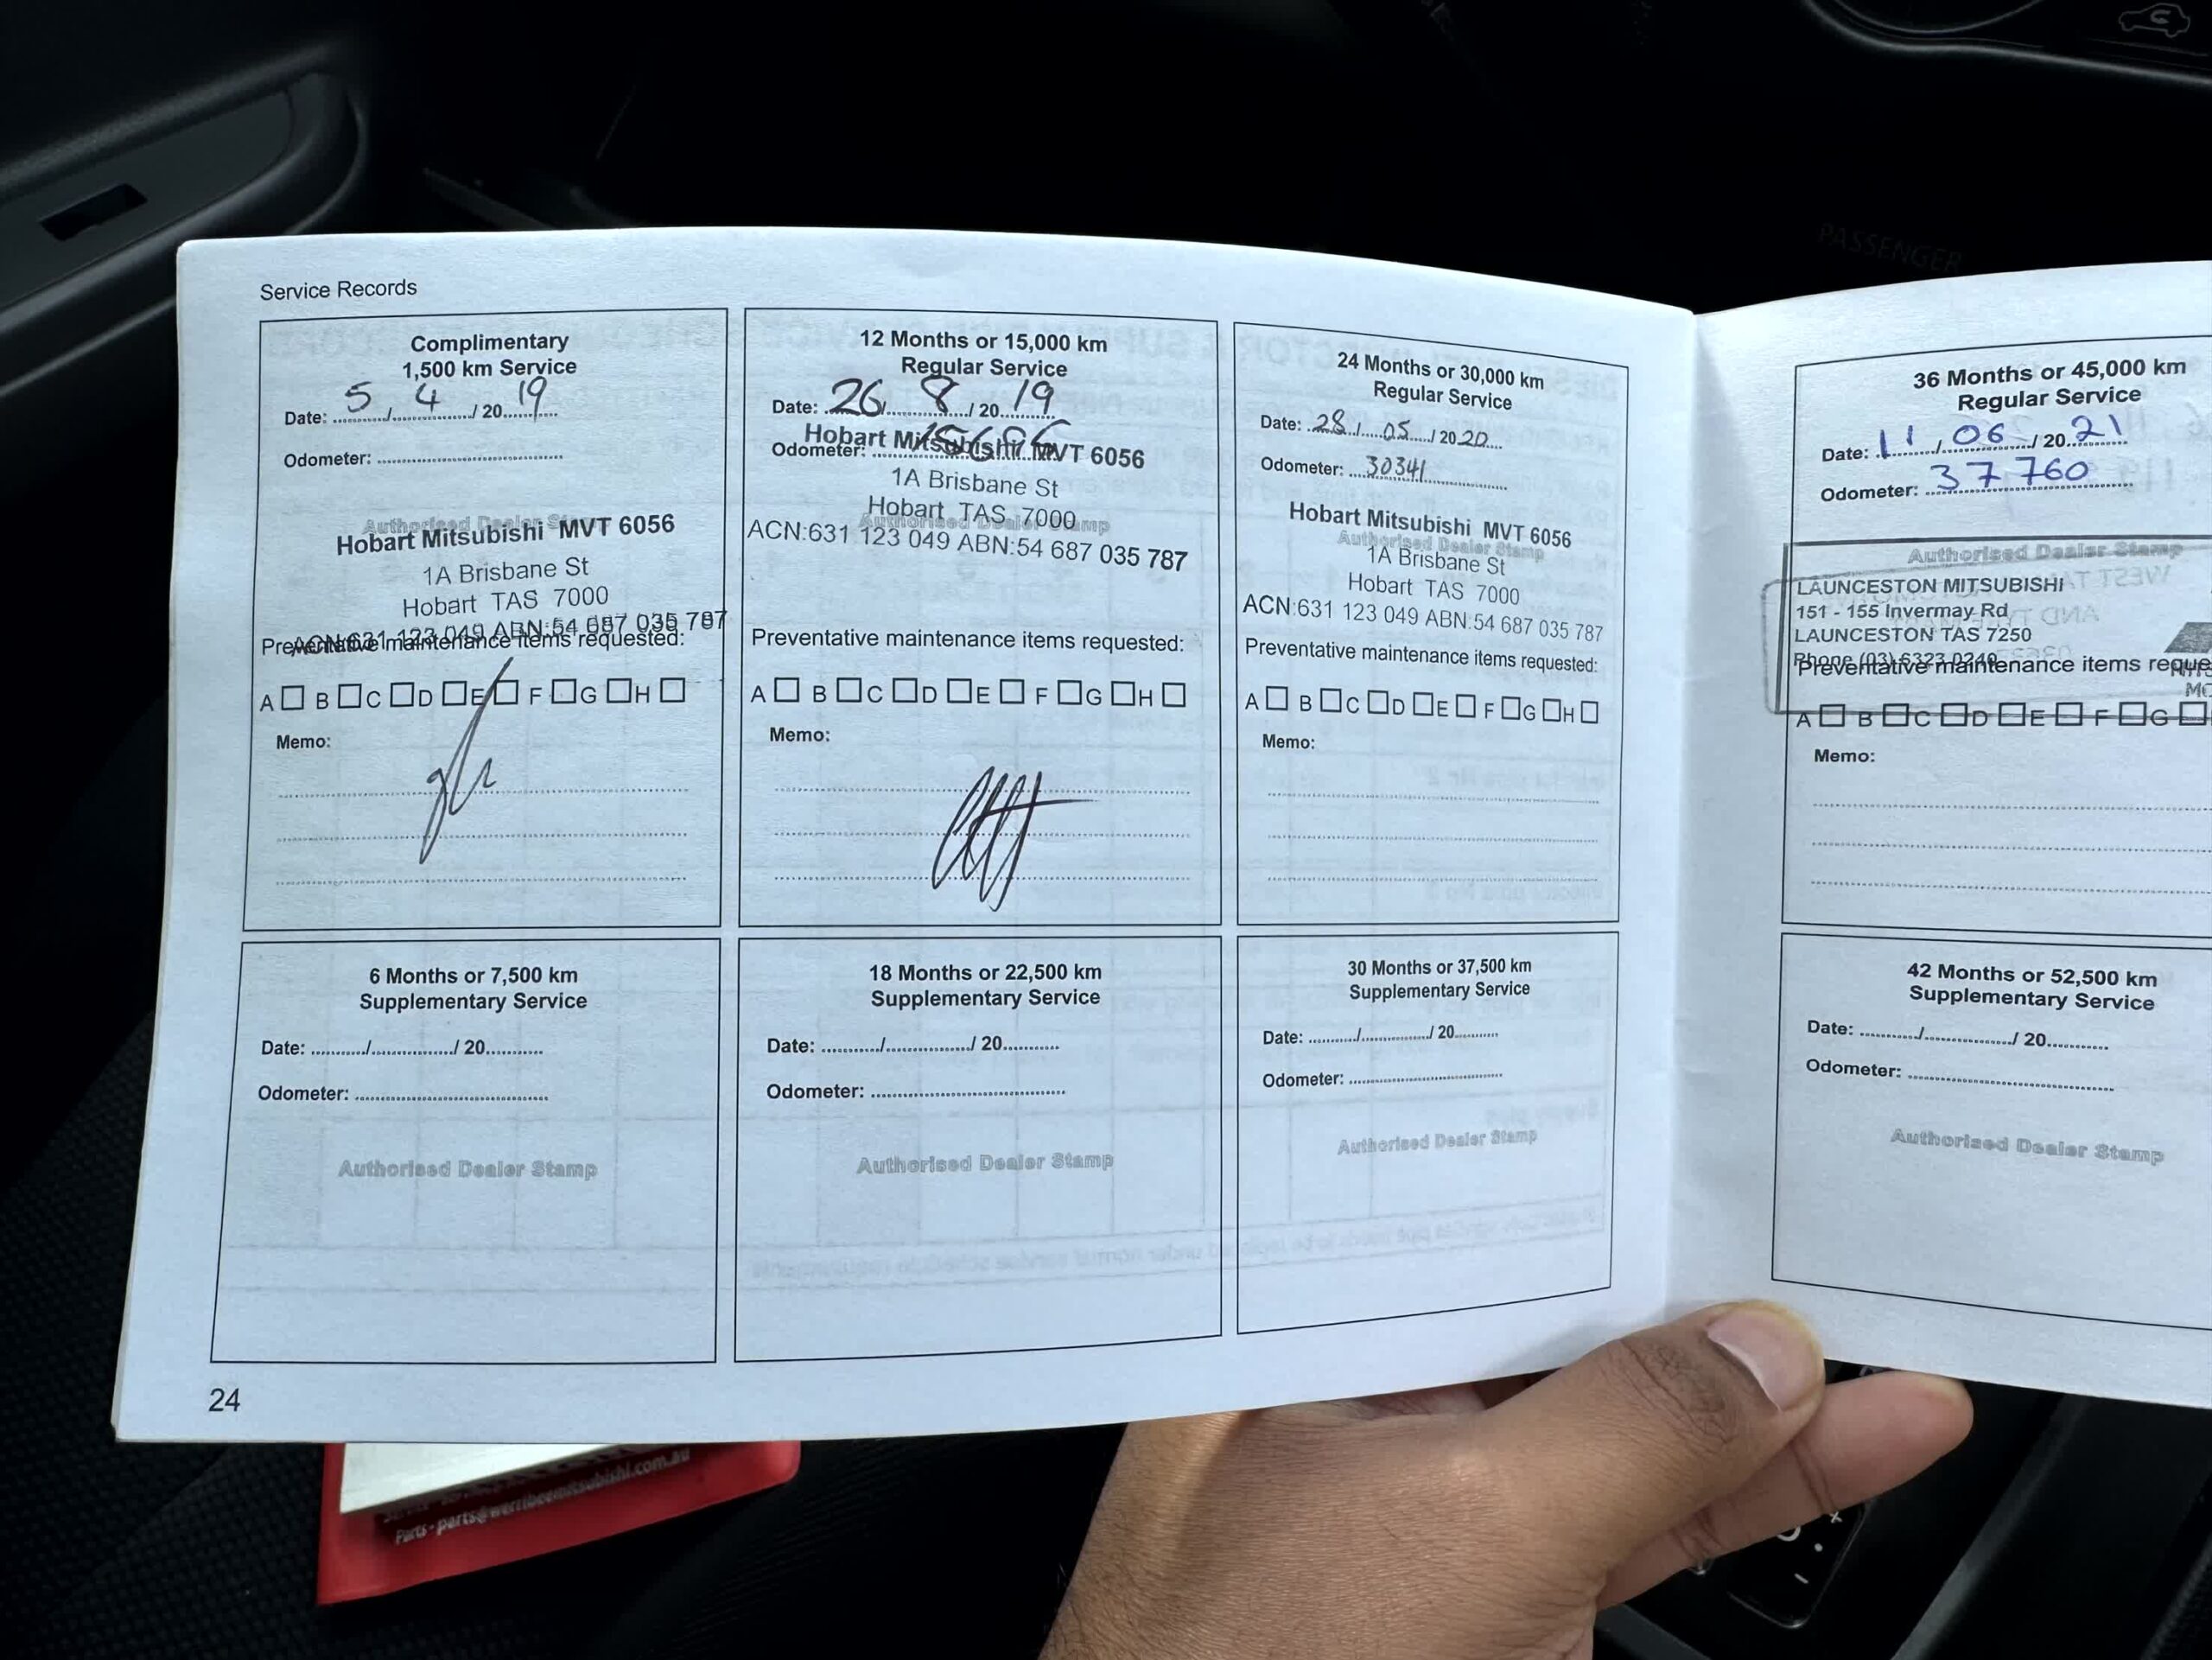 PASSENGER
Service Records
Complimentary
1,500 km Service
Date: 5 / 4 / 20 19
Odometer:
Authorised Dealer Stamp
Hobart Mitsubishi MVT 6056
1A Brisbane St
Hobart TAS 7000
ACN:631 123 049 ABN:54 687 035 787
Preventative maintenance items requested:
A B C D E F G H
Memo:
12 Months or 15,000 km
Regular Service
Date: 26 / 8 / 20 19
Odometer:
Hobart Mitsubishi MVT 6056
1A Brisbane St
Hobart TAS 7000
Authorised Dealer Stamp
ACN:631 123 049 ABN:54 687 035 787
Preventative maintenance items requested:
A B C D E F G H
Memo:
24 Months or 30,000 km
Regular Service
Date: 28 / 05 / 20 20
Odometer: 30341
Hobart Mitsubishi MVT 6056
Authorised Dealer Stamp
1A Brisbane St
Hobart TAS 7000
ACN:631 123 049 ABN:54 687 035 787
Preventative maintenance items requested:
A B C D E F G H
Memo:
36 Months or 45,000 km
Regular Service
Date: 11 / 06 / 20 21
Odometer: 37760
Authorised Dealer Stamp
LAUNCESTON MITSUBISHI
151 - 155 Invermay Rd
LAUNCESTON TAS 7250
Phone (03) 6323 0240
Preventative maintenance items reque
A B C D E F G
Memo:
6 Months or 7,500 km
Supplementary Service
Date: / / 20
Odometer:
Authorised Dealer Stamp
18 Months or 22,500 km
Supplementary Service
Date: / / 20
Odometer:
Authorised Dealer Stamp
30 Months or 37,500 km
Supplementary Service
Date: / / 20
Odometer:
Authorised Dealer Stamp
42 Months or 52,500 km
Supplementary Service
Date: / / 20
Odometer:
Authorised Dealer Stamp
24
Parts - parts@werribeemitsubishi.com.au